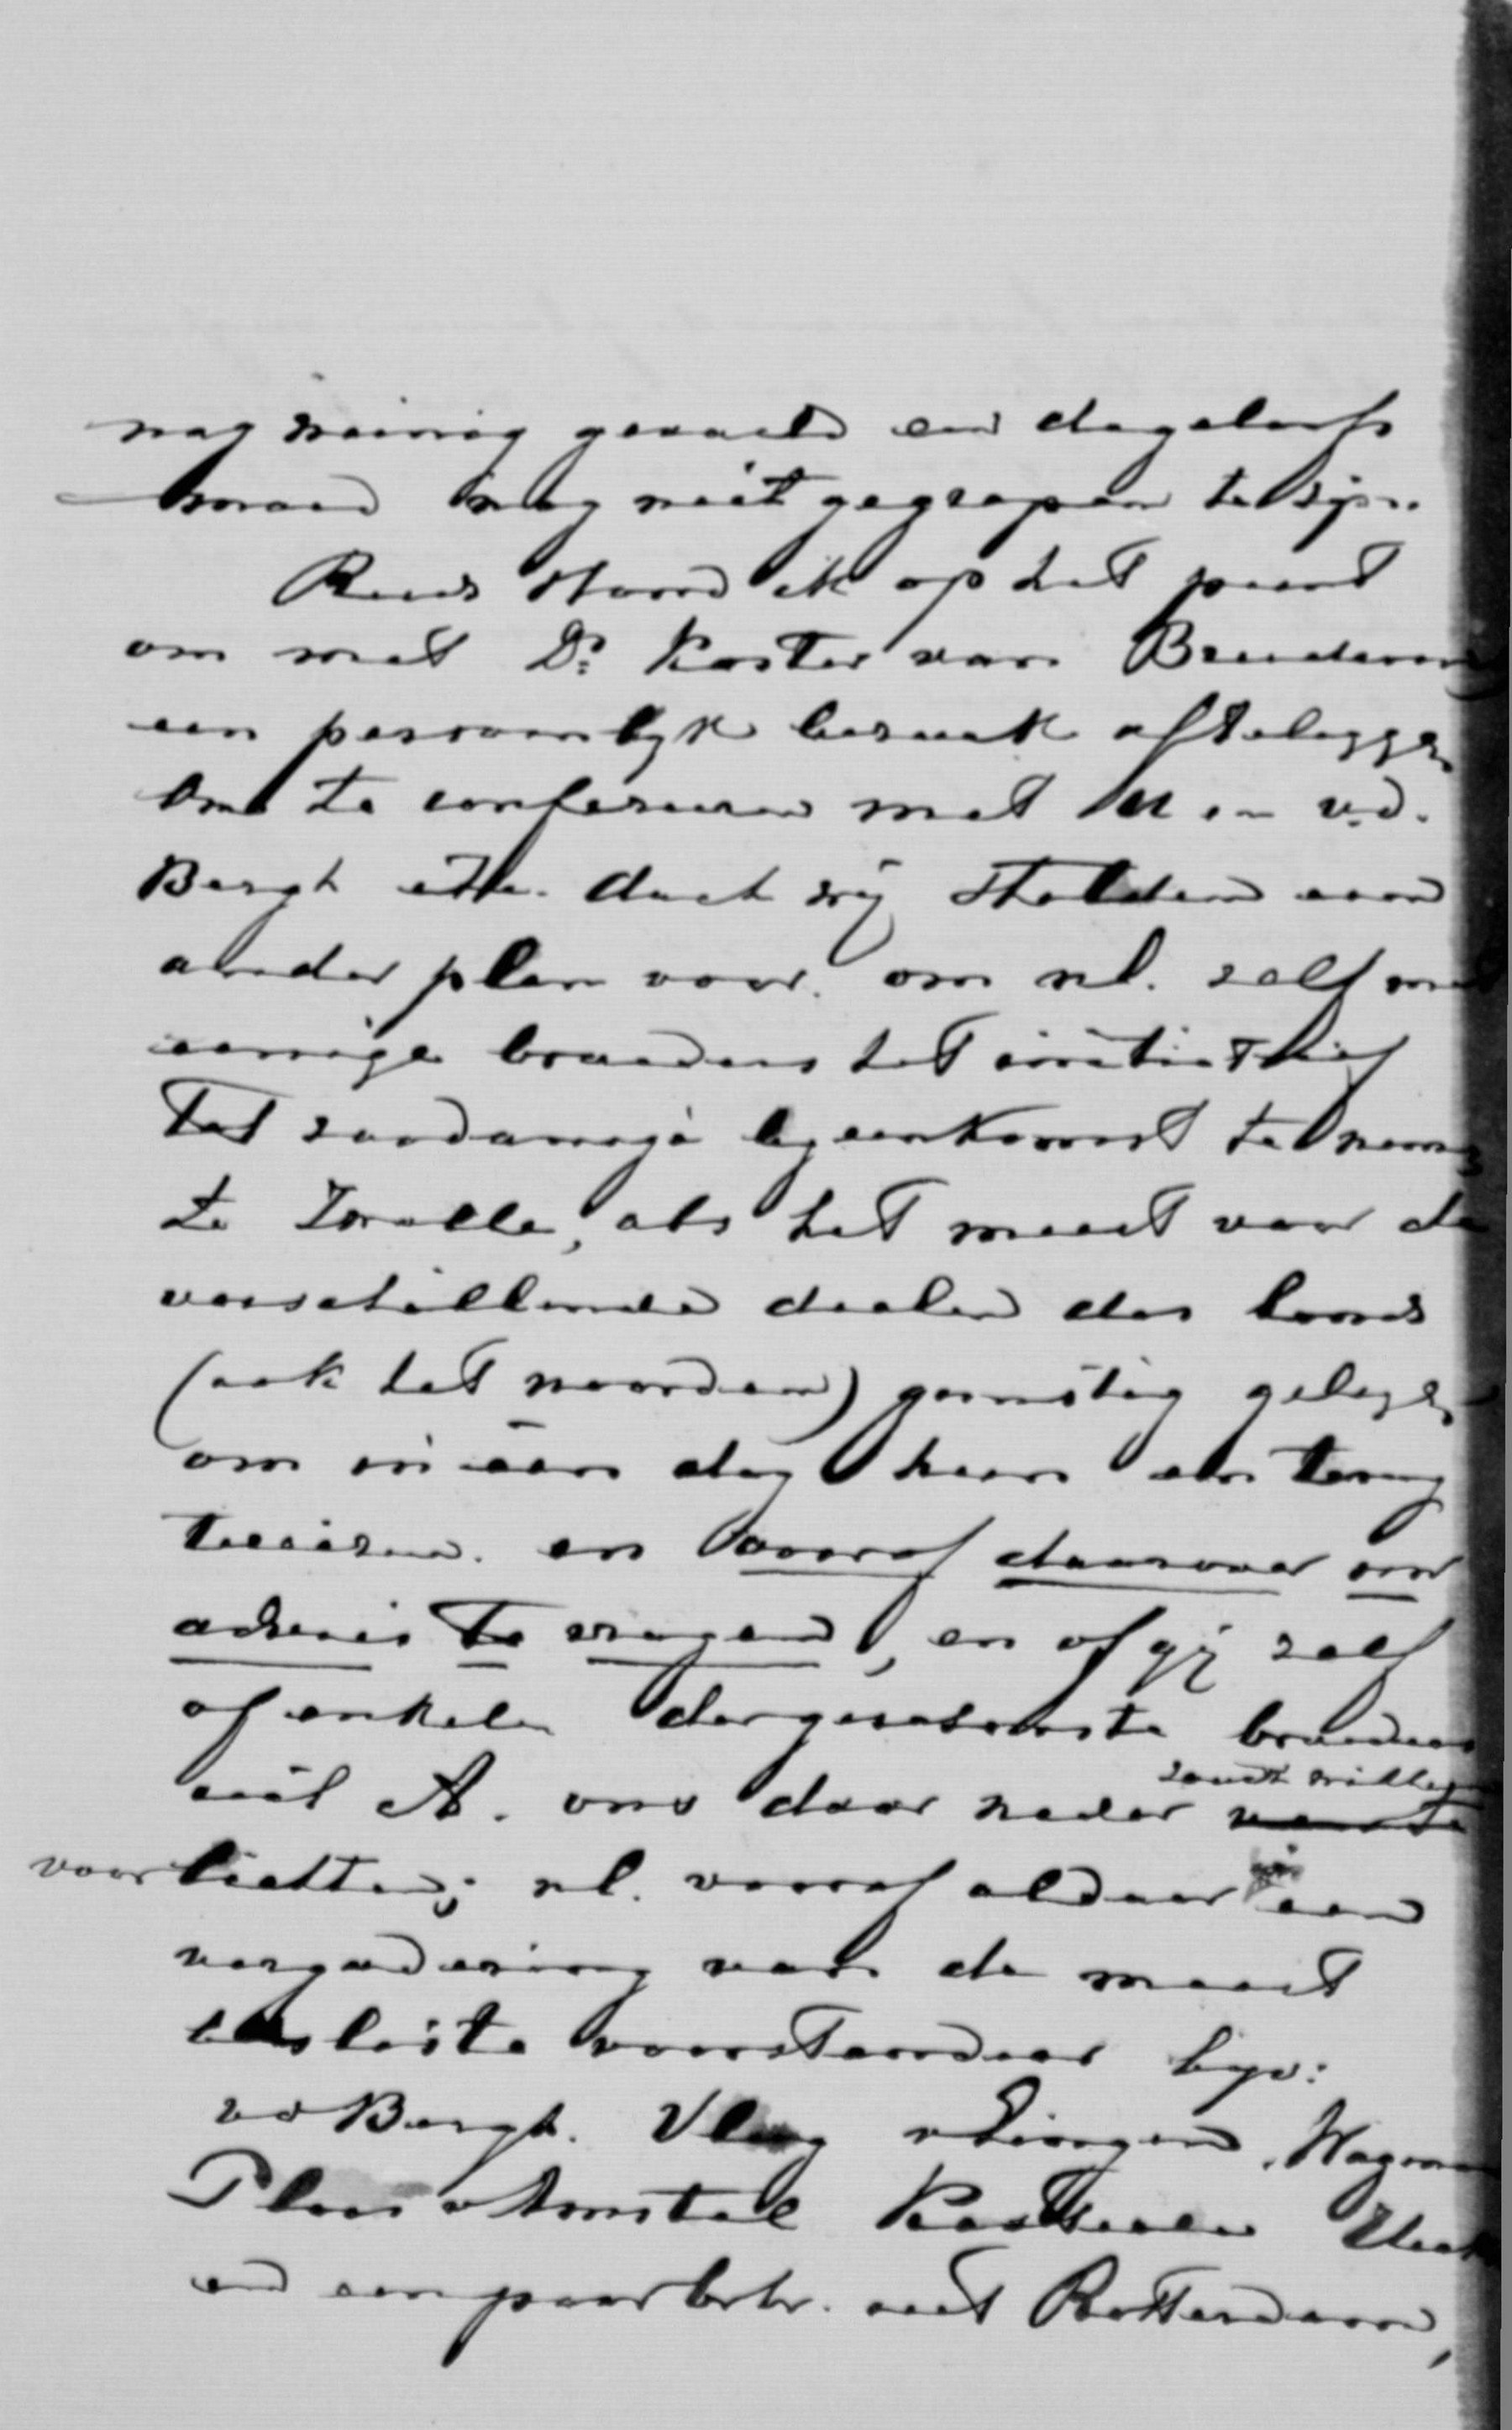 nog weinig gevoeld en
nog niet gegrepen te zijn.
Reeds stond ik op het punt
om met Dr. Koster van
een persoonlijk bezoek afteleggen
om te confereeren met U en v.d.
Bergh etc. doch wij stelden een
ander plan voor. om nl. zelf met
eenige broeders het initiatief
tot zoodanige bijeenkomst te nemen
te Zwolle, als het meest voor de
verschillende deelen des lands
(ook het noorden) gunstig gelegen
om in één dag heen en terug
te reizen. en vooraf daarover om
advies te vragen, en of gij zelf
of enkele dergenoemde broeders
uit A. ons daar nader
zoudt willen
voorlichten; nl. vooraf aldaar een
vergadering van de meest
besliste voorstanders bijv:
vd Bergh. Vlug
Ploos v Amstel
en een paar brbr. uit Rotterdam,